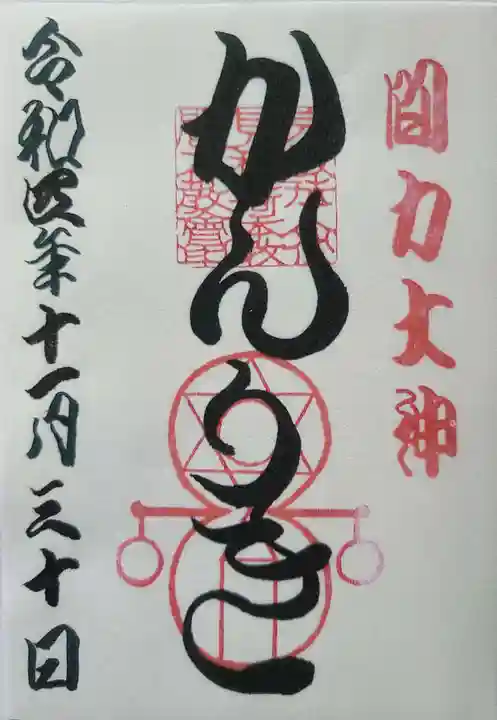 間力大神
かんりき
令和四年十一月三十日